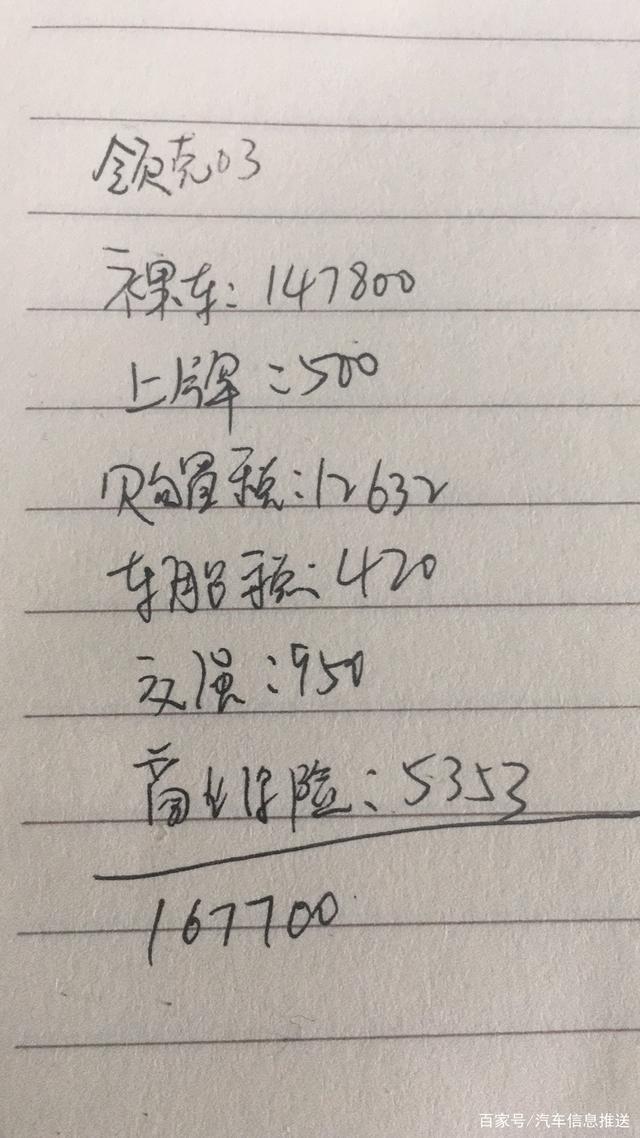 领克03
裸车：147800
上牌：500
购置税：12632
车船税：420
交强：950
商业保险：5353
167700
百家号/汽车信息推送